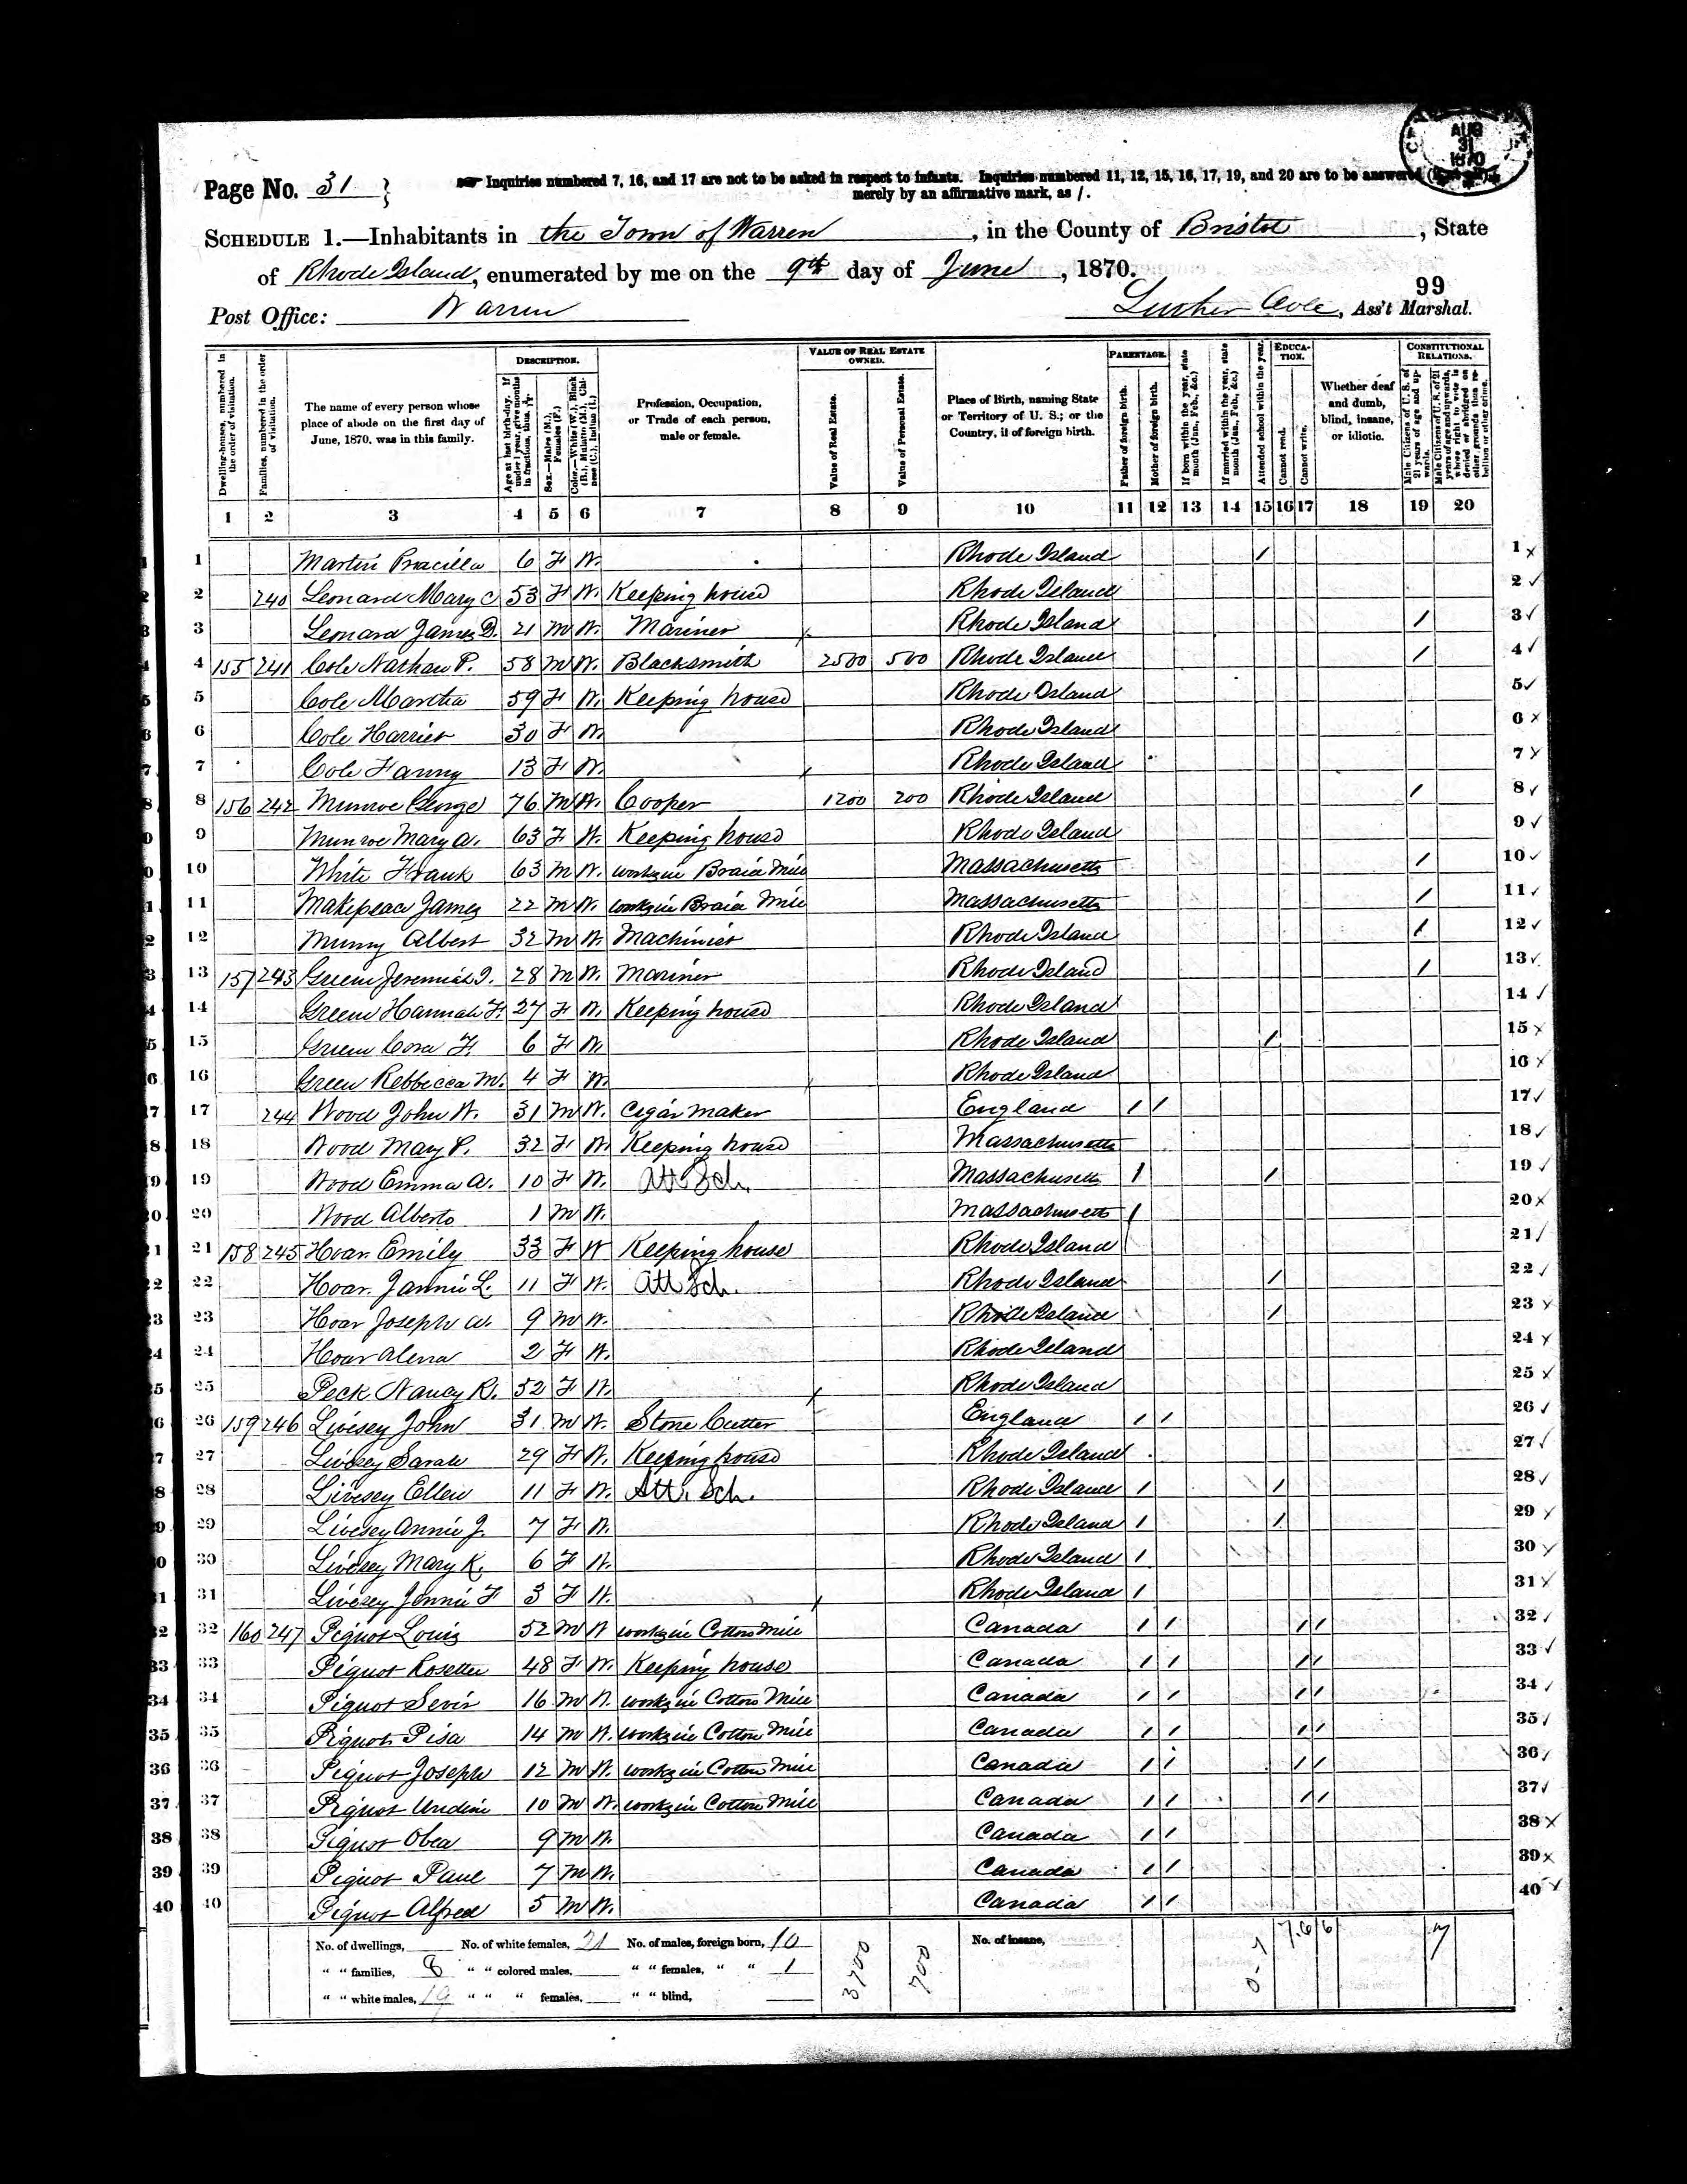 AUG
31
1870
Page No. 31
Inquiries numbered 7, 16, and 17 are not to be asked in respect to infants. Inquiries numbered 11, 12, 15, 16, 17, 19, and 20 are to be answered
merely by an affirmative mark, as /.
SCHEDULE 1.—Inhabitants in the Town of Warren, in the County of Bristol, State
of Rhode Island, enumerated by me on the 9th day of June, 1870.
99
Post Office: Warren
Luther Cole, Ass't Marshal.
Dwelling-houses, numbered in the order of visitation.
Families, numbered in the order of visitation.
The name of every person whose place of abode on the first day of June, 1870, was in this family.
DESCRIPTION.
Age at last birth-day. If under 1 year, give months in fractions, thus,
Sex.—Males (M.), Females (F.)
Color.—White (W.), Black (B.), Mulatto (M.), Chinese (C.), Indian (I.)
Profession, Occupation, or Trade of each person, male or female.
VALUE OF REAL ESTATE OWNED.
Value of Real Estate.
Value of Personal Estate.
Place of Birth, naming State or Territory of U. S.; or the Country, if of foreign birth.
PARENTAGE.
Father of foreign birth.
Mother of foreign birth.
If born within the year, state month (Jan., Feb., &c.)
If married within the year, state month (Jan., Feb., &c.)
Attended school within the year.
EDUCATION.
Cannot read.
Cannot write.
Whether deaf and dumb, blind, insane, or idiotic.
CONSTITUTIONAL RELATIONS.
Male Citizens of U. S. of 21 years of age and upwards.
Male Citizens of U. S. of 21 years of age and upwards, whose right to vote is denied or abridged on other grounds than rebellion or other crime.
1 2 3 4 5 6 7 8 9 10 11 12 13 14 15 16 17 18 19 20
1 Martin 6 F W. Rhode Island / 1
2 240 Leonard Mary C 53 F W. Keeping house Rhode Island 2
3 Leonard James D. 21 M W. Mariner Rhode Island / 3
4 155 241 Cole Nathan P. 58 M W. Blacksmith 2500 500 Rhode Island / 4
5 Cole Martha 59 F W. Keeping house Rhode Island 5
6 Cole Harriet 30 F W. Rhode Island 6
7 Cole Fanny 13 F W. Rhode Island 7
8 156 242 Munroe George 76 M W. Cooper 1200 200 Rhode Island / 8
9 Munroe Mary A. 63 F W. Keeping house Rhode Island 9
10 White Frank 63 M W. works in Braid Mill Massachusetts / 10
11 Makepeace James 22 M W. works in Braid Mill Massachusetts / 11
12 Albert 32 M W. Machinist Rhode Island / 12
13 157 243 Green Jeremiah 28 M W. Mariner Rhode Island / 13
14 Green Hannah F. 27 F W. Keeping house Rhode Island 14
15 Green Cora F. 6 F W. Rhode Island / 15
16 Green Rebbecca M. 4 F W. Rhode Island 16
17 244 Wood John W. 31 M W. Cigar Maker England / / 17
18 Wood Mary P. 32 F W. Keeping house Massachusetts 18
19 Wood Emma A. 10 F W. Att Sch. Massachusetts / / 19
20 Wood Alberto 1 M W. Massachusetts / 20
21 158 245 Hoar Emily 33 F W Keeping house Rhode Island 21
22 Hoar Jannie L. 11 F W. Att Sch. Rhode Island / 22
23 Hoar Joseph W. 9 M W. Rhode Island / 23
24 Hoar Alena 2 F W. Rhode Island 24
25 Peck Nancy R. 52 F W. Rhode Island 25
26 159 246 Livesey John 31 M W. Stone Cutter England / / 26
27 Livesey Sarah 29 F W. Keeping house Rhode Island 27
28 Livesey Ellen 11 F W. Att. Sch. Rhode Island / / 28
29 Livesey Annie J. 7 F W. Rhode Island / / 29
30 Livesey Mary K. 6 F W. Rhode Island / 30
31 Livesey Jennie F 3 F W. Rhode Island / 31
32 160 247 Piquot Louis 52 M W works in Cotton Mill Canada / / / / 32
33 Piquot Rosetta 48 F W. Keeping house Canada / / / / 33
34 Piquot Sevir 16 M W. works in Cotton Mill Canada / / / / 34
35 Piquot Pisa 14 M W. works in Cotton Mill Canada / / / / 35
36 Piquot Joseph 12 M W. works in Cotton Mill Canada / / / / 36
37 Piquot 10 M W. works in Cotton Mill Canada / / / / 37
38 Piquot Obea 9 M W. Canada / / 38
39 Piquot Paul 7 M W. Canada / / 39
40 Piquot Alfred 5 M W. Canada / / 40
No. of dwellings, No. of white females, 21 No. of males, foreign born, 10 3700 700 No. of insane, 7 6 6 7
" " families, 8 " " colored males, " " females, " " 1
" " white males, 19 " " " females, " " blind,